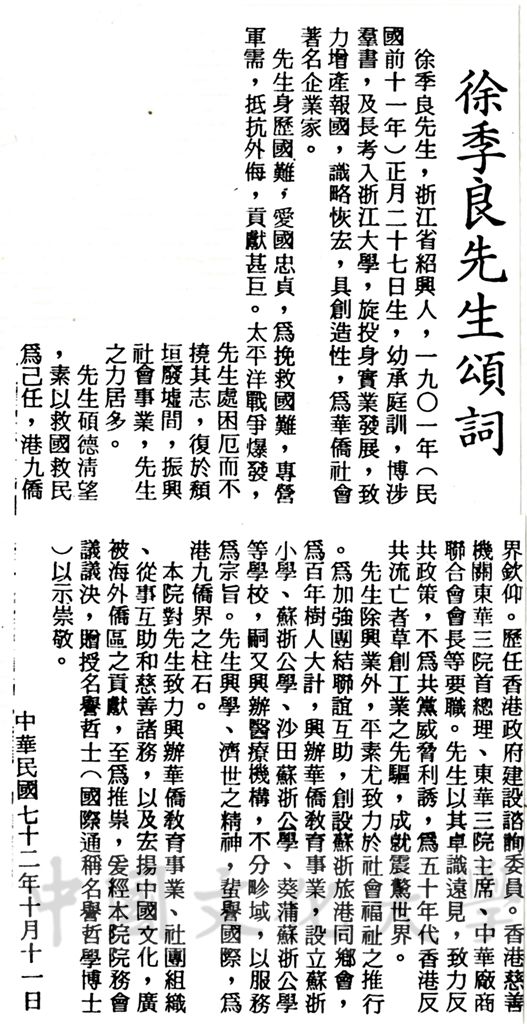 徐季良先生頌詞
徐季良先生，浙江省紹興人，一九〇一年（民
國前十一年）正月二十七日生，幼承庭訓，博涉
羣書，及長考入浙江大學，旋投身實業發展，致
力增產報國，識略恢宏，具創造性，爲華僑社會
著名企業家。
先生身歷國難，愛國忠貞，爲挽救國難，專營
軍需，抵抗外侮，貢獻甚巨。太平洋戰爭爆發，
先生處困厄而不
撓其志，復於頹
垣廢墟間，振興
社會事業，先生
之力居多。
先生碩德清望
，素以救國救民
爲己任，港九僑
界欽仰。歷任香港政府建設諮詢委員。香港慈善
機關東華三院首總理、東華三院主席、中華廠商
聯合會會長等要職。先生以其卓識遠見，致力反
共政策，不爲共黨威脅利誘，爲五十年代香港反
共流亡者草創工業之先驅，成就震驚世界。
先生除興業外，平素尤致力於社會福祉之推行
。爲加強團結聯誼互助，創設蘇浙旅港同鄉會，
爲百年樹人大計，興辦華僑教育事業，設立蘇浙
小學、蘇浙公學、沙田蘇浙公學、葵蒲蘇浙公學
等學校，嗣又興辦醫療機構，不分畛域，以服務
爲宗旨。先生興學、濟世之精神，蜚譽國際，爲
港九僑界之柱石。
本院對先生致力興辦華僑教育事業、社團組織
、從事互助和慈善諸務，以及宏揚中國文化，廣
被海外僑區之貢獻，至爲推崇，爰經本院院務會
議議決，贈授名譽哲士（國際通稱名譽哲學博士
）以示崇敬。
中華民國七十二年十月十一日
中國文化大學